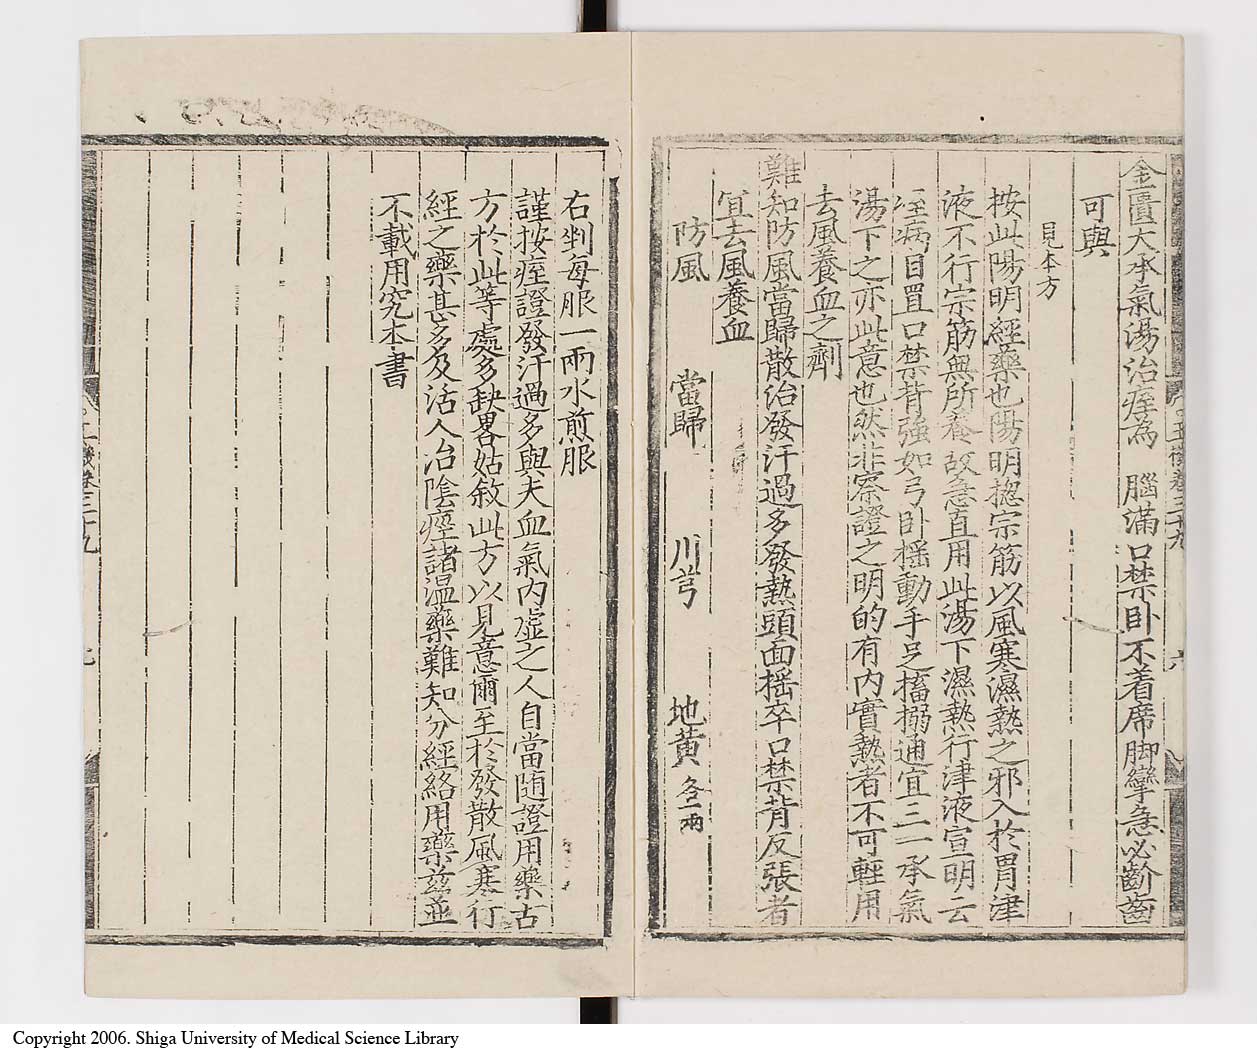 金匱大承氣湯治痓為 腦滿口禁卧不着席脚攣急必齘齒
可與
見本方
按此陽明經藥也陽明揔宗筋以風寒濕熱之邪入於胃津
液不行宗筋無所養故急直用此湯下濕熱行津液宣明云
痓病目置口禁背強如弓卧揺動手足搐搦通宜三一承氣
湯下之亦此意也然非察證之明的有内實熱者不可輕用
去風養血之劑
難知防風當歸散治發汗過多發熱頭面揺卒口禁背反張者
宜去風養血
防風 當歸 川芎 地黄各一兩
右剉每服一兩水煎服
謹按痓證發汗過多與夫血氣内虚之人自當随證用藥古
方於此等處多缺畧姑敘此方以見意爾至於發散風寒行
經之藥甚多及活人治陰痓諸温藥難知分經絡用藥兹並
不載用究本書
Copyright 2006. Shiga University of Medical Science Library